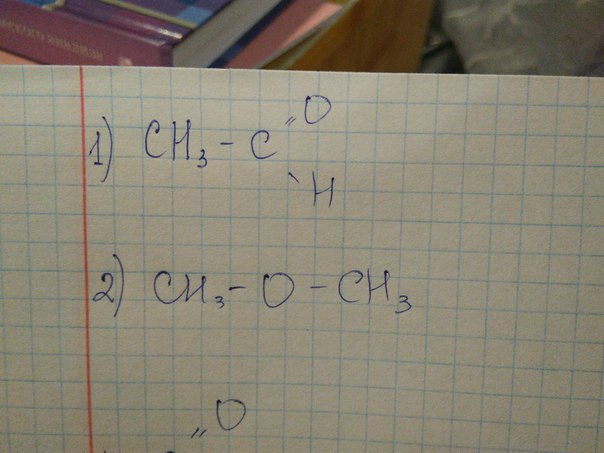 1) CH₃ - C
"O
\H
2) CH₃ - O - CH₃
"O